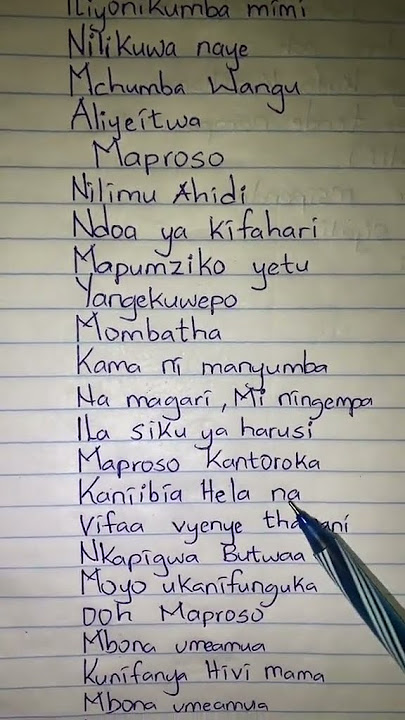 Iliyonikumba mimi
Nilikuwa naye
Mchumba Wangu
Aliyeitwa
Maproso
Nilimu Ahidi
Ndoa ya kifahari
Mapumziko yetu
Yangekuwepo
Mombatha
Kama ni manyumba
Na magari, Mi ningempa
Ila siku ya harusi
Maproso Kantoroka
Kaniibia Hela na
Vifaa vyenye
Nkapigwa Butwaa
Moyo ukanifunguka
DOh Maproso
Mbona umeamua
Kunifanya Hivi mama
Mbona umeamua